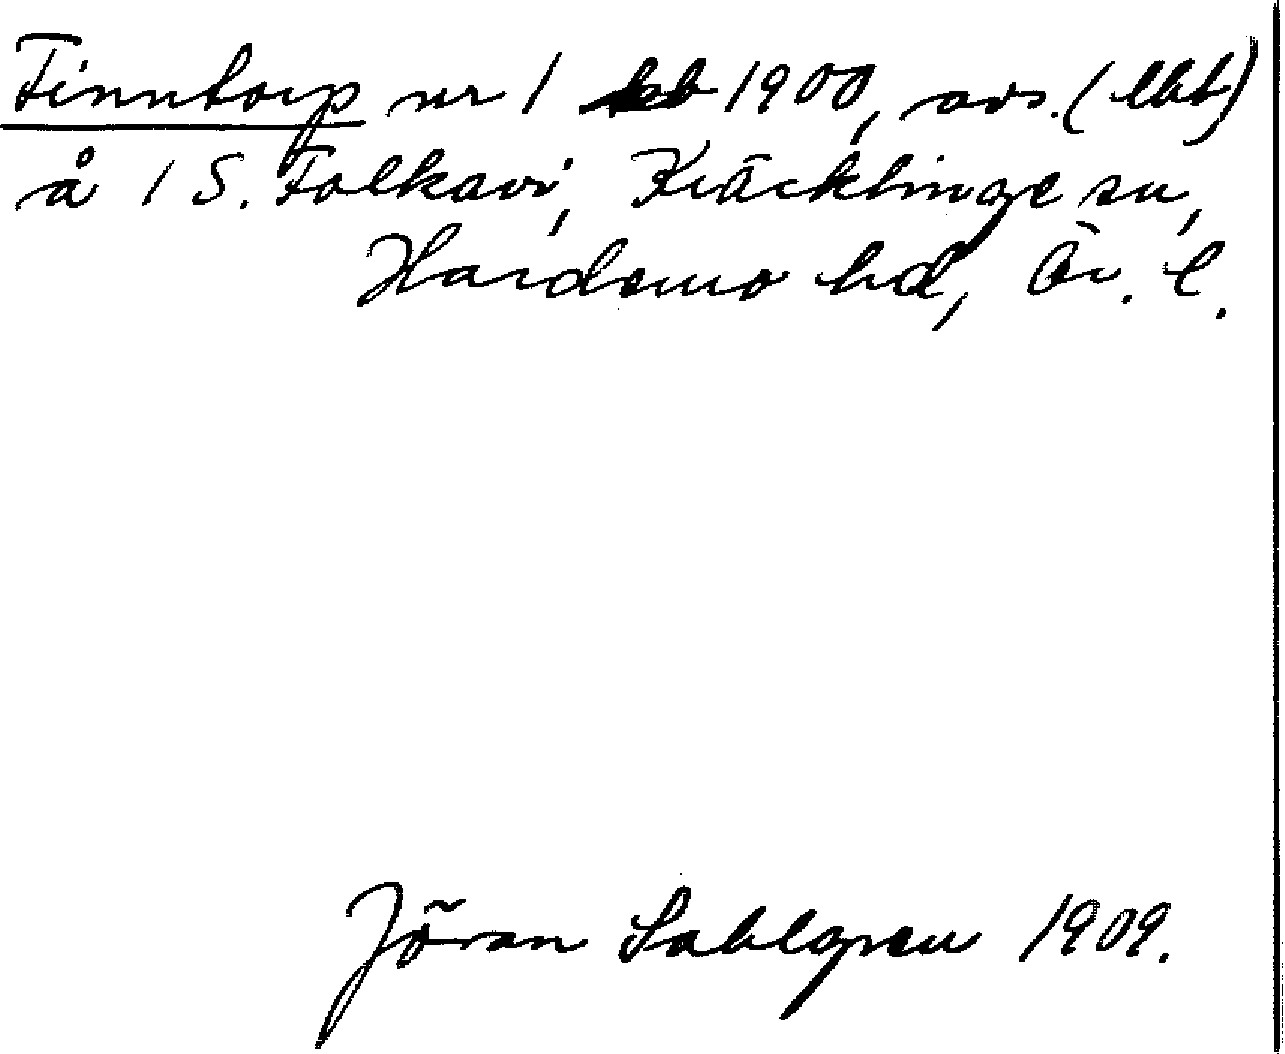 Finntorp nr 1 kb 1900, avs. (lht)
å 1 S. Folkavi, Kräcklinge sn,
Hardemo hd, Ör. l.
Jöran Sahlgren 1909.